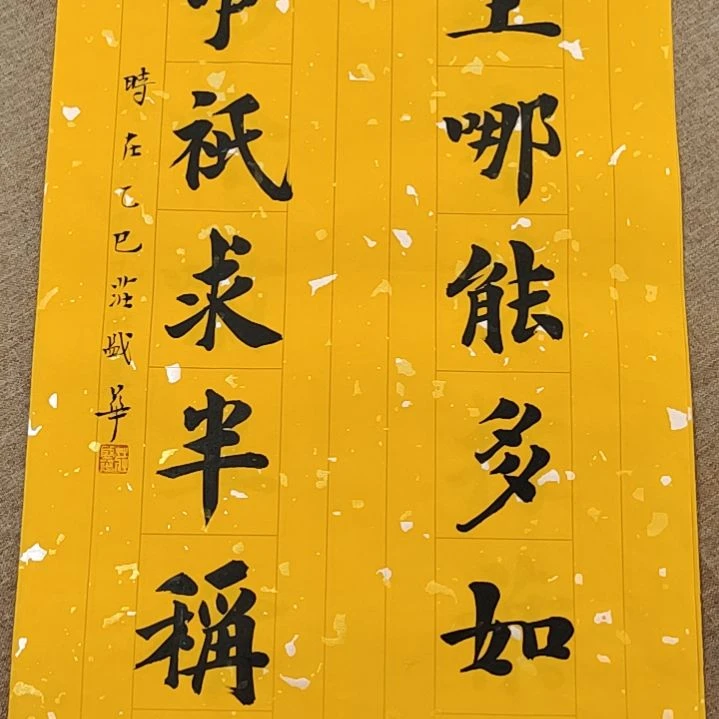 哪能多如
祇求半稱
時在乙巳莊戲華